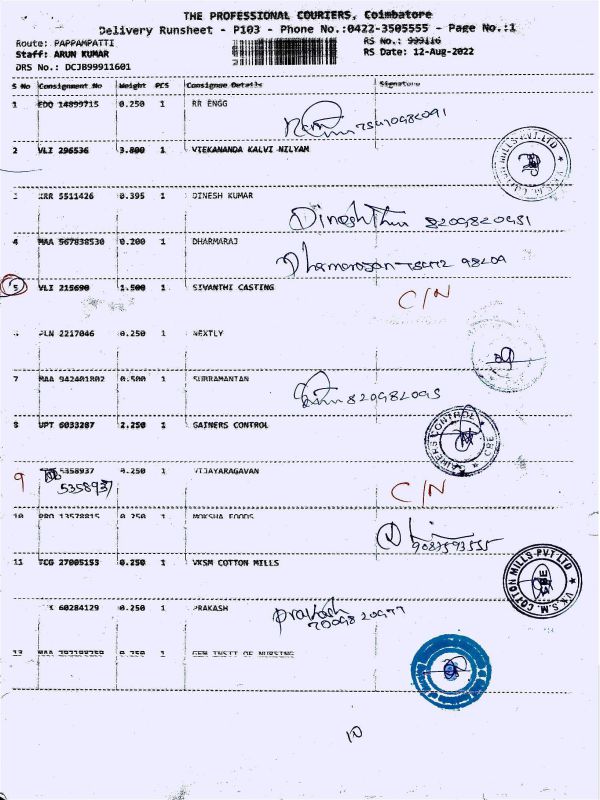 THE PROFESSIONAL COURIERS, Coimbatore
Delivery Runsheet - P103 - Phone No.:0422-3505555 - Page No.:1
Route: PAPPAMPATTI RS No.: 999116
Staff: ARUN KUMAR RS Date: 12-Aug-2022
DRS No.: DCJB99911601
S No Consignment No Weight PCS Consignee Details Signature
1 EDQ 14899715 0.250 1 RR ENGG
2 VLI 296536 3.800 1 VIEKANANDA KALVI NILYAM
3 KRR 5511426 0.395 1 DINESH KUMAR
8209820951
4 MAA 567838530 0.200 1 DHARMARAJ
5 VLI 215690 1.500 1 SIVANTHI CASTING
C/N
PLN 2217046 0.250 1 NEXTLY
7 MAA 942401802 0.500 1 SUBRAMANIAN
820982095
8 UPT 6033207 2.250 1 GAINERS CONTROL
GAINERS CONTROL CBE
9 5358937 0.250 1 VIJAYARAGAVAN
5358937
C/N
10 13578815 0.250 1 MOKSHA FOODS
9087593555
11 TCG 27005153 0.250 1 VKSM COTTON MILLS
V.K.S.M. COTTON MILLS PVT LTD CBE
60284129 0.250 1 PRAKASH
Prakash
13 MAA 0.250 1 GEM INSTT OF NURSING